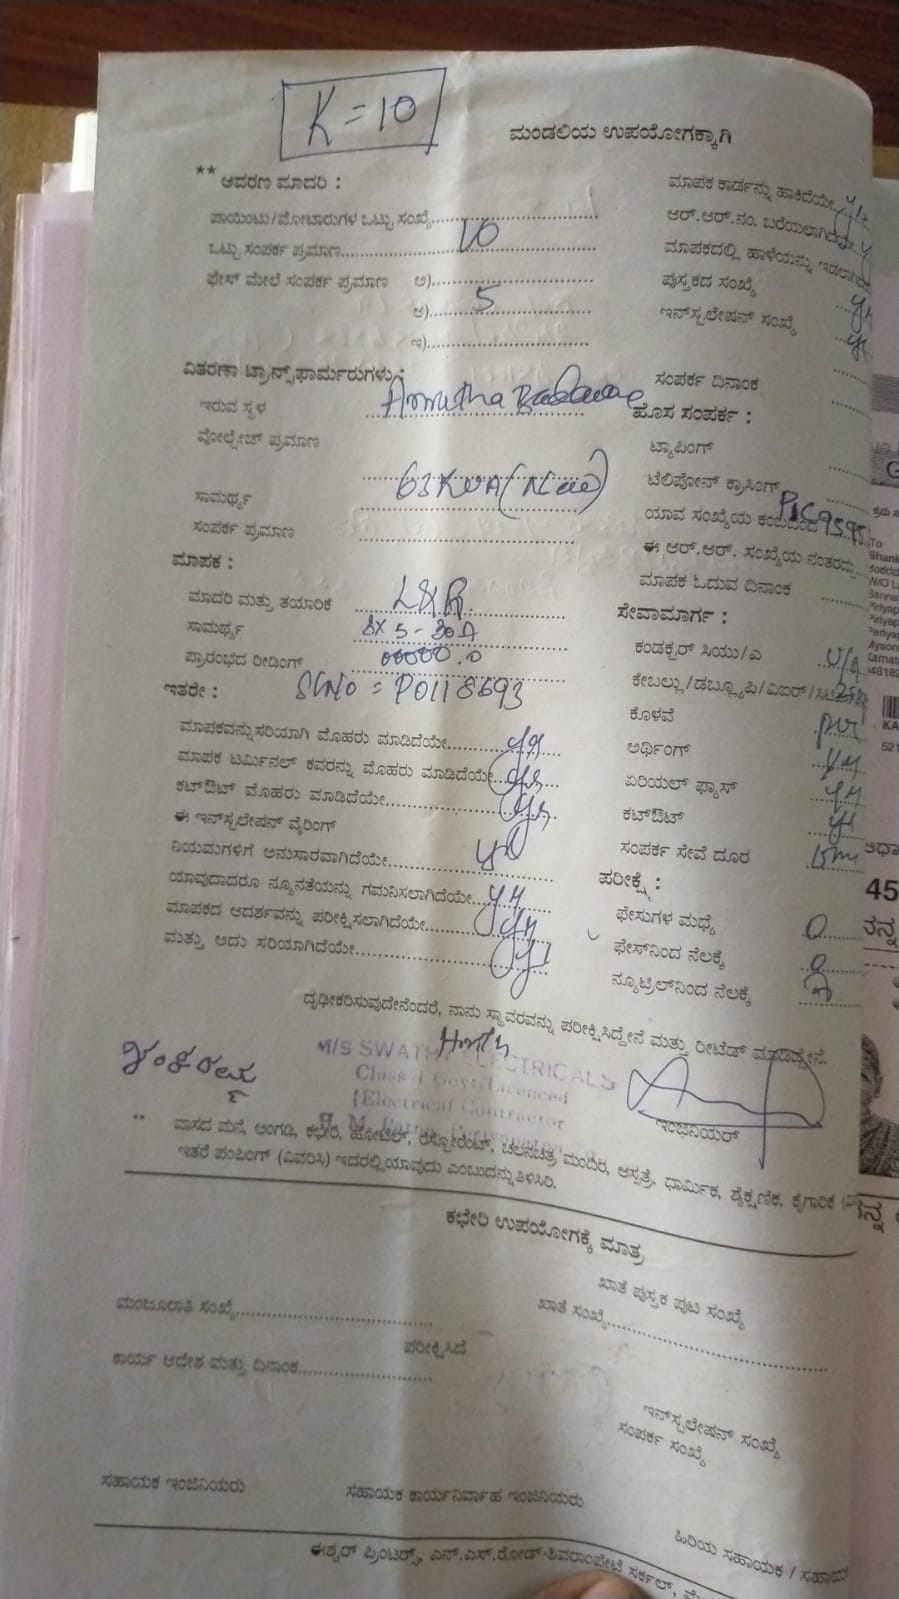 K = 10
ಮಂಡಲಿಯ ಉಪಯೋಗಕ್ಕಾಗಿ
** ಆವರಣ ಮಾದರಿ :
ಪಾಯಿಂಟು/ಮೋಟಾರುಗಳ ಒಟ್ಟು ಸಂಖ್ಯೆ 10
ಒಟ್ಟು ಸಂಪರ್ಕ ಪ್ರಮಾಣ
ಫೇಸ್ ಮೇಲೆ ಸಂಪರ್ಕ ಪ್ರಮಾಣ ಅ)
ಆ) 5
ಇ)
ವಿತರಣಾ ಟ್ರಾನ್ಸ್‌ಫಾರ್ಮರುಗಳು :
ಇರುವ ಸ್ಥಳ Amrutha
ವೋಲ್ಟೇಜ್ ಪ್ರಮಾಣ
ಸಾಮರ್ಥ್ಯ 63KVA (New)
ಸಂಪರ್ಕ ಪ್ರಮಾಣ
ಮಾಪಕ :
ಮಾದರಿ ಮತ್ತು ತಯಾರಿಕೆ
ಸಾಮರ್ಥ್ಯ 5-30A
ಪ್ರಾರಂಭದ ರೀಡಿಂಗ್ 00000.0
ಇತರೇ : Sl No = P0118693
ಮಾಪಕವನ್ನು ಸರಿಯಾಗಿ ಮೊಹರು ಮಾಡಿದೆಯೇ yes
ಮಾಪಕ ಟರ್ಮಿನಲ್ ಕವರನ್ನು ಮೊಹರು ಮಾಡಿದೆಯೇ yes
ಕಟ್‌ಔಟ್ ಮೊಹರು ಮಾಡಿದೆಯೇ yes
ಈ ಇನ್‌ಸ್ಟಲೇಷನ್ ವೈರಿಂಗ್
ನಿಯಮಗಳಿಗೆ ಅನುಸಾರವಾಗಿದೆಯೇ yes
ಯಾವುದಾದರೂ ನ್ಯೂನತೆಯನ್ನು ಗಮನಿಸಲಾಗಿದೆಯೇ yes
ಮಾಪಕದ ಆದರ್ಶವನ್ನು ಪರೀಕ್ಷಿಸಲಾಗಿದೆಯೇ yes
ಮತ್ತು ಅದು ಸರಿಯಾಗಿದೆಯೇ yes
ಮಾಪಕ ಕಾರ್ಡನ್ನು ಹಾಕಿದೆಯೇ yes
ಆರ್.ಆರ್.ನಂ. ಬರೆಯಲಾಗಿದೆಯೇ
ಮಾಪಕದಲ್ಲಿ ಹಾಳೆಯನ್ನು
ಪುಸ್ತಕದ ಸಂಖ್ಯೆ yes
ಇನ್‌ಸ್ಟಲೇಷನ್ ಸಂಖ್ಯೆ yes
ಸಂಪರ್ಕ ದಿನಾಂಕ
ಹೊಸ ಸಂಪರ್ಕ :
ಟ್ಯಾಪಿಂಗ್
ಟೆಲಿಪೋನ್ ಕ್ರಾಸಿಂಗ್
ಯಾವ ಸಂಖ್ಯೆಯ ಕಂಬದಿಂದ
ಈ ಆರ್.ಆರ್. ಸಂಖ್ಯೆಯ ನಂತರದ್ದು
ಮಾಪಕ ಓದುವ ದಿನಾಂಕ
ಸೇವಾಮಾರ್ಗ :
ಕಂಡಕ್ಟರ್ ಸಿಯು/ಎ
ಕೇಬಲ್ಲು/ಡಬ್ಲ್ಯೂಪಿ/ವಿಐಆರ್/
ಕೊಳವೆ pvc
ಅರ್ಥಿಂಗ್ yes
ಏರಿಯಲ್ ಫ್ಯೂಸ್ yes
ಕಟ್‌ಔಟ್ yes
ಸಂಪರ್ಕ ಸೇವೆ ದೂರ
ಪರೀಕ್ಷೆ :
ಫೇಸುಗಳ ಮಧ್ಯೆ 0
ಫೇಸ್‌ನಿಂದ ನೆಲಕ್ಕೆ 0
ನ್ಯೂಟ್ರಲ್‌ನಿಂದ ನೆಲಕ್ಕೆ
ದೃಢೀಕರಿಸುವುದೇನೆಂದರೆ, ನಾನು ಸ್ಥಾವರವನ್ನು ಪರೀಕ್ಷಿಸಿದ್ದೇನೆ ಮತ್ತು ರೀಟೆಡ್ ಮಾಡಿದ್ದೇನೆ.
M/S SWATHI ELECTRICALS
Class I Govt Licenced
Electrical Contractor
ಇಂಜಿನಿಯರ್
** ವಾಸದ ಮನೆ, ಅಂಗಡಿ, ಕಛೇರಿ, ಹೋಟೆಲ್, ರೆಸ್ಟೋರೆಂಟ್, ಚಲನಚಿತ್ರ ಮಂದಿರ, ಆಸ್ಪತ್ರೆ, ಧಾರ್ಮಿಕ, ಶೈಕ್ಷಣಿಕ, ಕೈಗಾರಿಕೆ
ಇತರೆ ಪಂಪಿಂಗ್ (ವಿವರಿಸಿ) ಇದರಲ್ಲಿ ಯಾವುದು ಎಂಬುದನ್ನು ತಿಳಿಸಿರಿ.
ಕಛೇರಿ ಉಪಯೋಗಕ್ಕೆ ಮಾತ್ರ
ಮಂಜೂರಾತಿ ಸಂಖ್ಯೆ
ಖಾತೆ ಪುಸ್ತಕ ಪುಟ ಸಂಖ್ಯೆ
ಖಾತೆ ಸಂಖ್ಯೆ
ಪರೀಕ್ಷಿಸಿದೆ
ಕಾರ್ಯ ಆದೇಶ ಮತ್ತು ದಿನಾಂಕ
ಇನ್‌ಸ್ಟಲೇಷನ್ ಸಂಖ್ಯೆ
ಸಂಪರ್ಕ ಸಂಖ್ಯೆ
ಸಹಾಯಕ ಇಂಜಿನಿಯರು
ಸಹಾಯಕ ಕಾರ್ಯನಿರ್ವಾಹ ಇಂಜಿನಿಯರು
ಹಿರಿಯ ಸಹಾಯಕ /
ಈಶ್ವರ್ ಪ್ರಿಂಟರ್ಸ್, ಎನ್.ಎಸ್.ರೋಡ್-ಶಿವರಾಂಪೇಟೆ ಸರ್ಕಲ್,